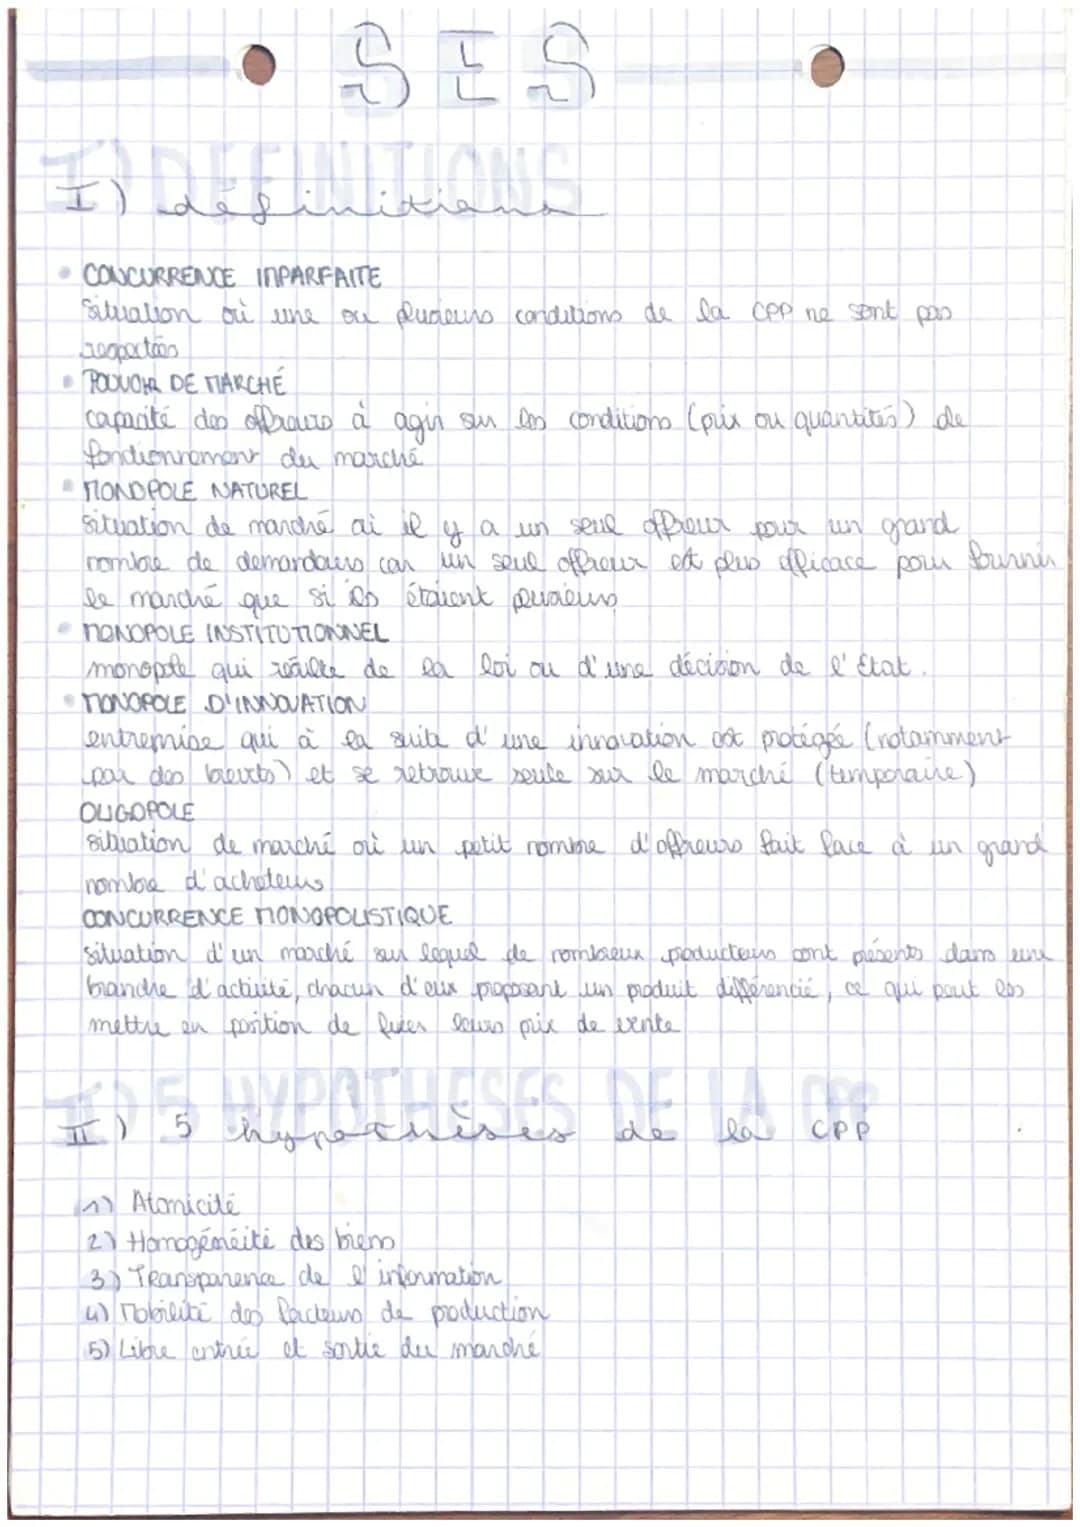 SES
I) DEFINITIONS
I) définitions
CONCURRENCE IMPARFAITE
Situation où une ou plusieurs conditions de la CPP ne sont pas
respectées
POUVOIR DE MARCHÉ
capacité des offreurs à agir sur les conditions (prix ou quantités) de
fonctionnement du marché
MONOPOLE NATUREL
situation de marché où il y a un seul offreur pour un grand
nombre de demandeurs car un seul offreur est plus efficace pour fournir
le marché que si ils étaient plusieurs
MONOPOLE INSTITUTIONNEL
monopole qui résulte de la loi ou d'une décision de l'Etat.
MONOPOLE D'INNOVATION
entreprise qui à la suite d'une innovation est protégée (notamment
par des brevets) et se retrouve seule sur le marché (temporaire)
OLIGOPOLE
situation de marché où un petit nombre d'offreurs fait face à un grand
nombre d'acheteurs
CONCURRENCE MONOPOLISTIQUE
situation d'un marché sur lequel de nombreux producteurs sont présents dans une
branche d'activité, chacun d'eux proposant un produit différencié, ce qui peut les
mettre en position de fixer leurs prix de vente
II) 5 HYPOTHESES DE LA CPP
II) 5 hypothèses de la CPP
1) Atomicité
2) Homogénéité des biens
3) Transparence de l'information
4) Mobilité des facteurs de production
5) Libre entrée et sortie du marché